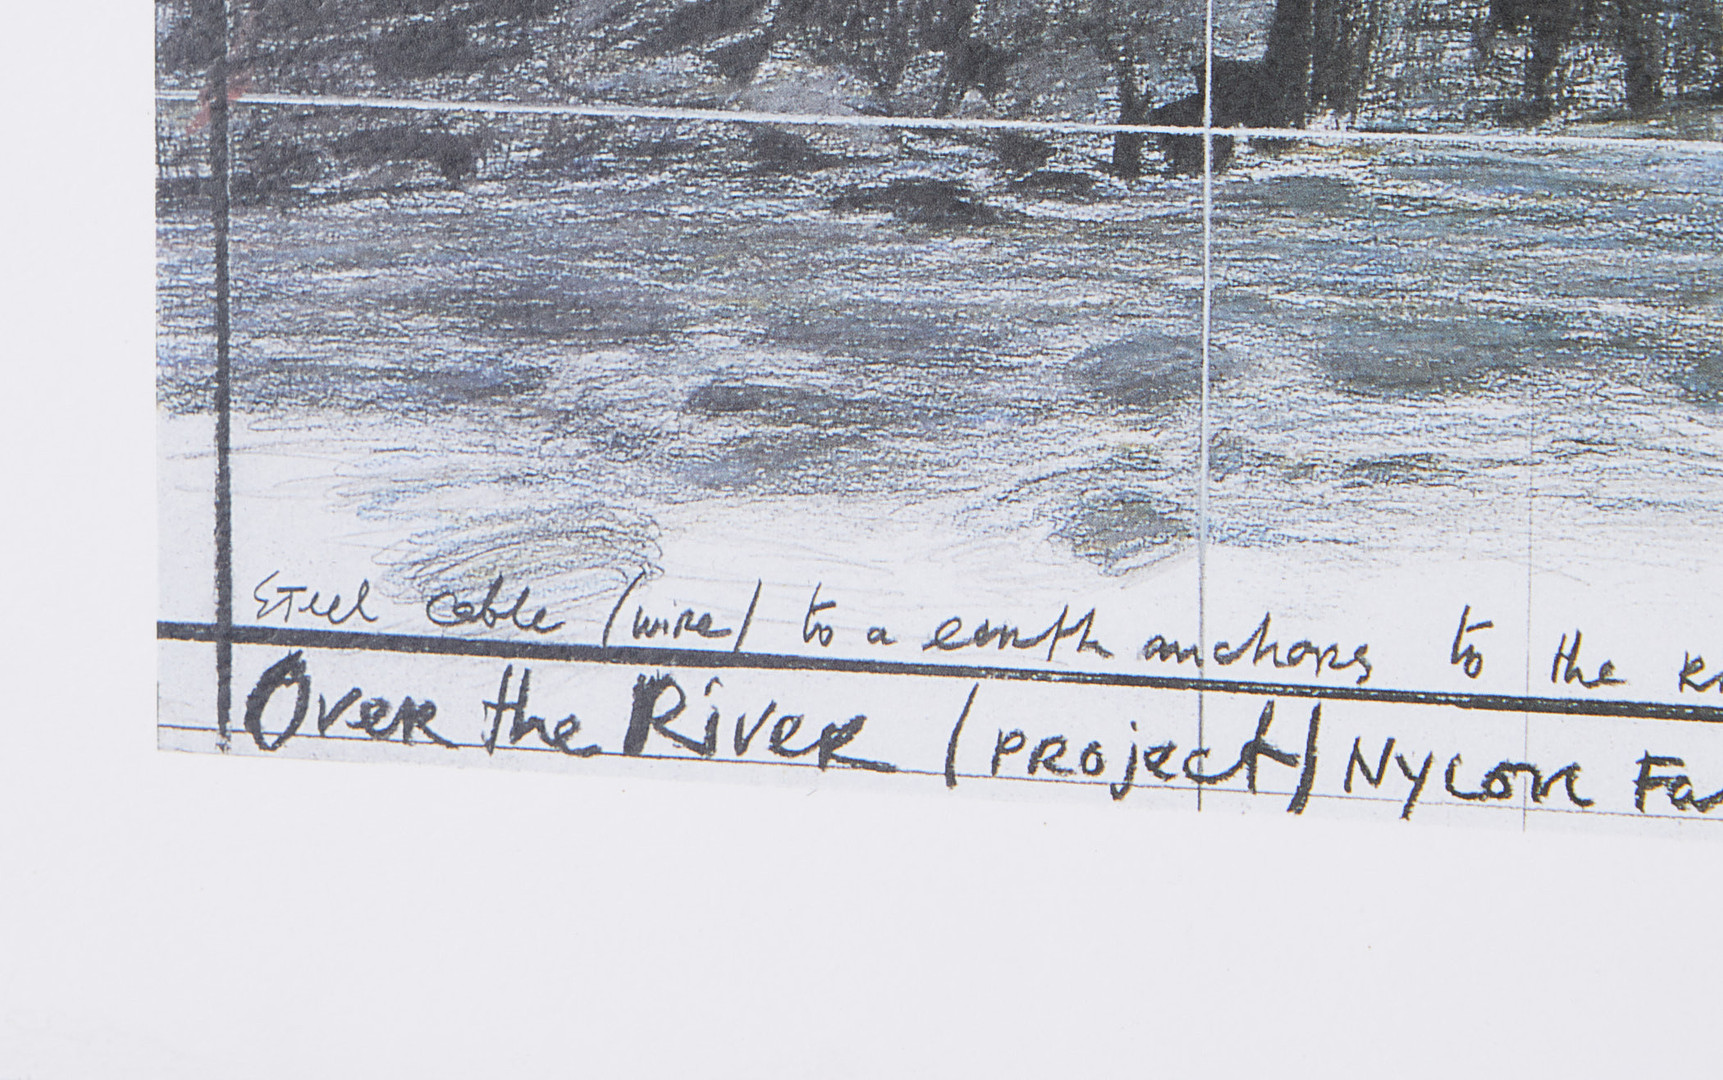 Steel cable /wire/ to a earth anchors to the
Over the River /PROJECT/ Nylon Fa